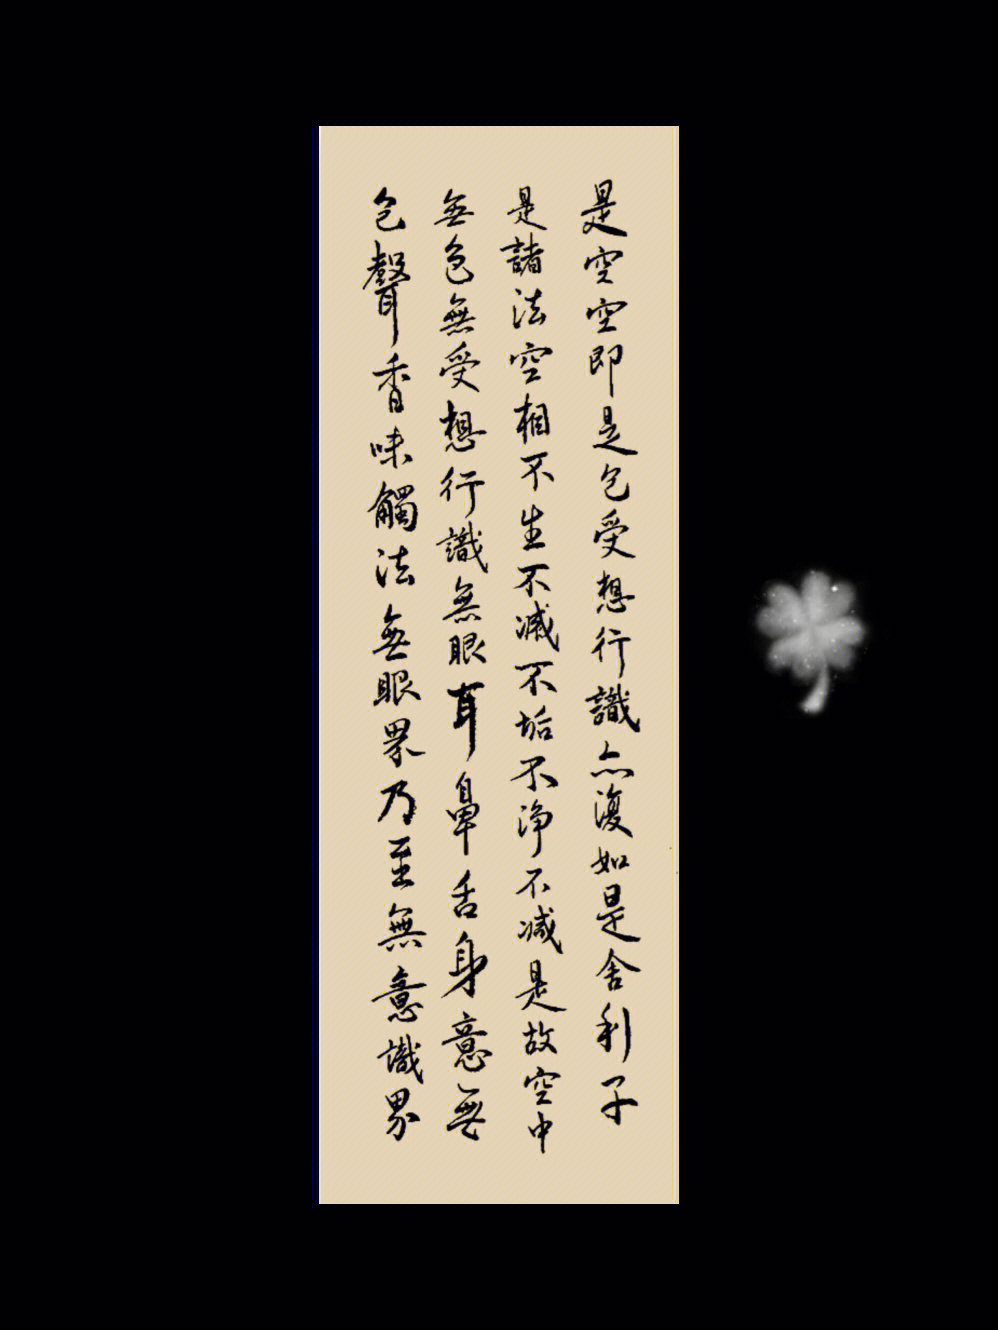 是空空即是色受想行識亦復如是舍利子
是諸法空相不生不滅不垢不淨不減是故空中
無色無受想行識無眼耳鼻舌身意無
色聲香味觸法無眼界乃至無意識界